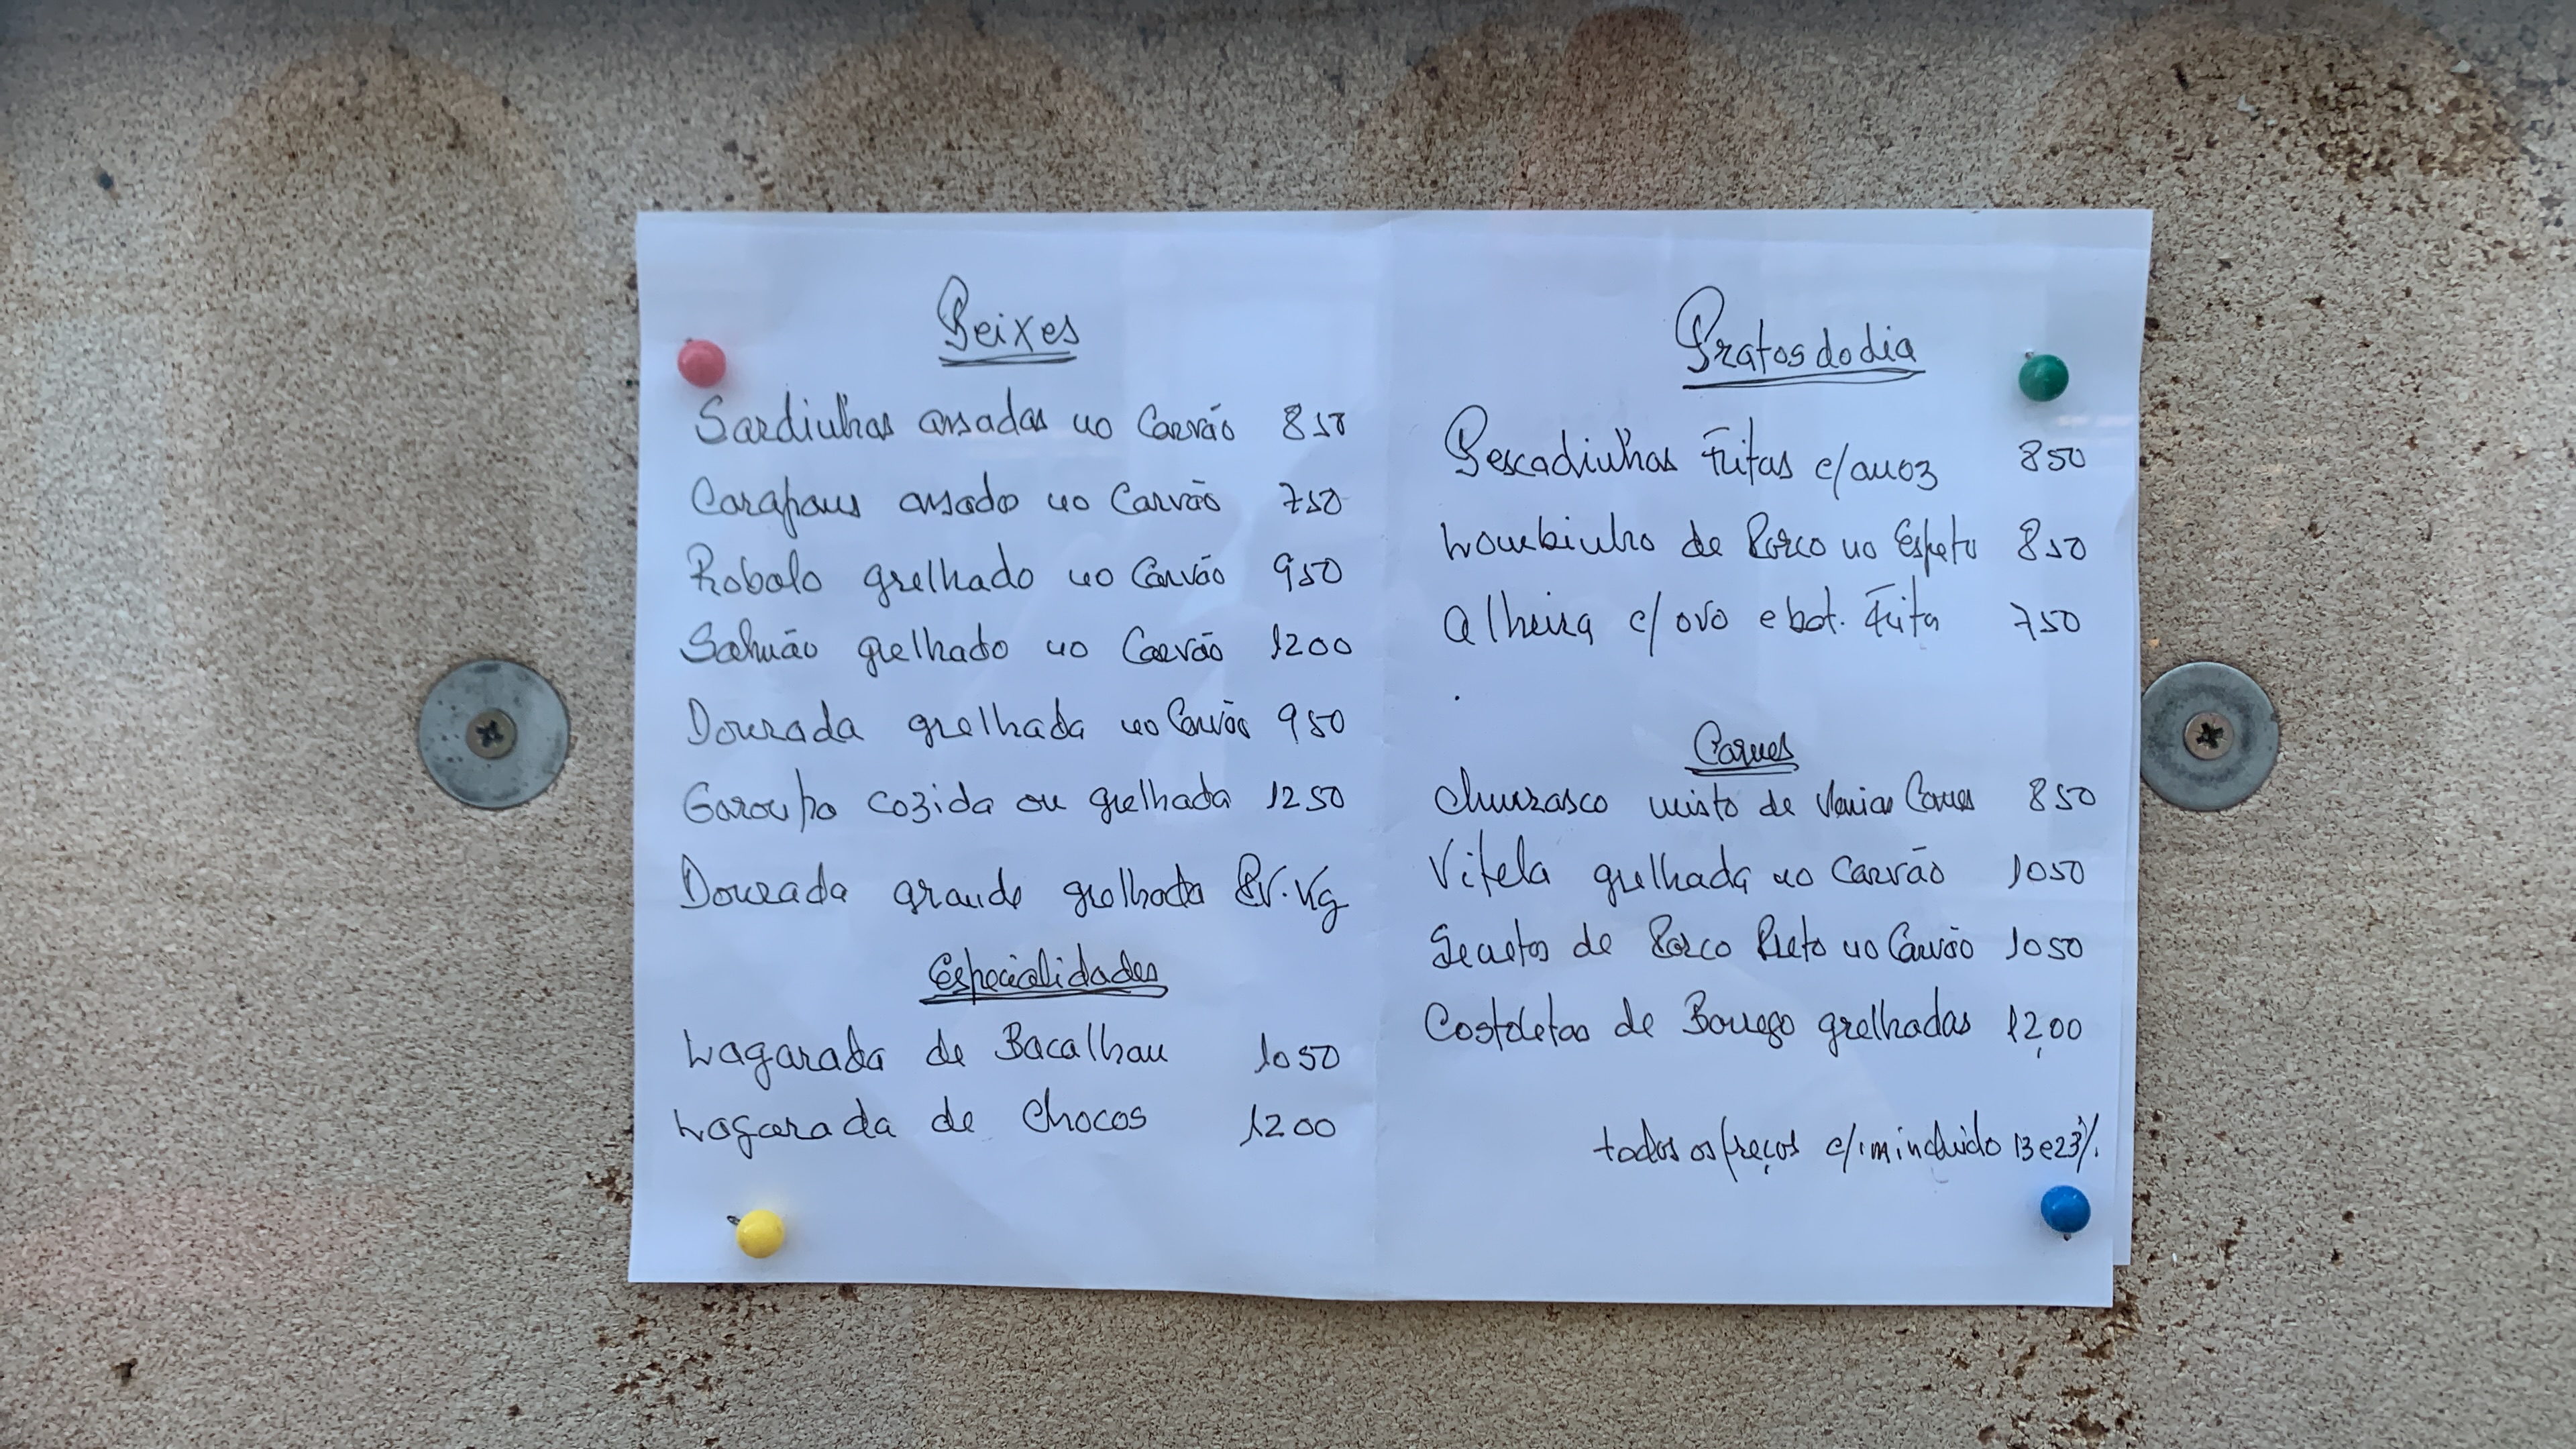 Peixes
Sardinhas assadas no Carvão 850
Carapaus assado no Carvão 750
Robalo grelhado no Carvão 950
Salmão grelhado no Carvão 1200
Dourada grelhada no Carvão 950
Garoupa cozida ou grelhada 1250
Dourada grande grelhada Pr. Kg
Especialidades
Lagarada de Bacalhau 1050
Lagarada de Chocos 1200
Pratos do dia
Pescadinhas Fritas c/arroz 850
Lombinho de Porco no Espeto 850
Alheira c/ ovo e bat. Frita 750
Carnes
Churrasco misto de Várias Carnes 850
Vitela grelhada no Carvão 1050
Secretos de Porco Preto no Carvão 1050
Costoletas de Borrego grelhadas 12,00
todos os preços c/ incluido 13 e 23%